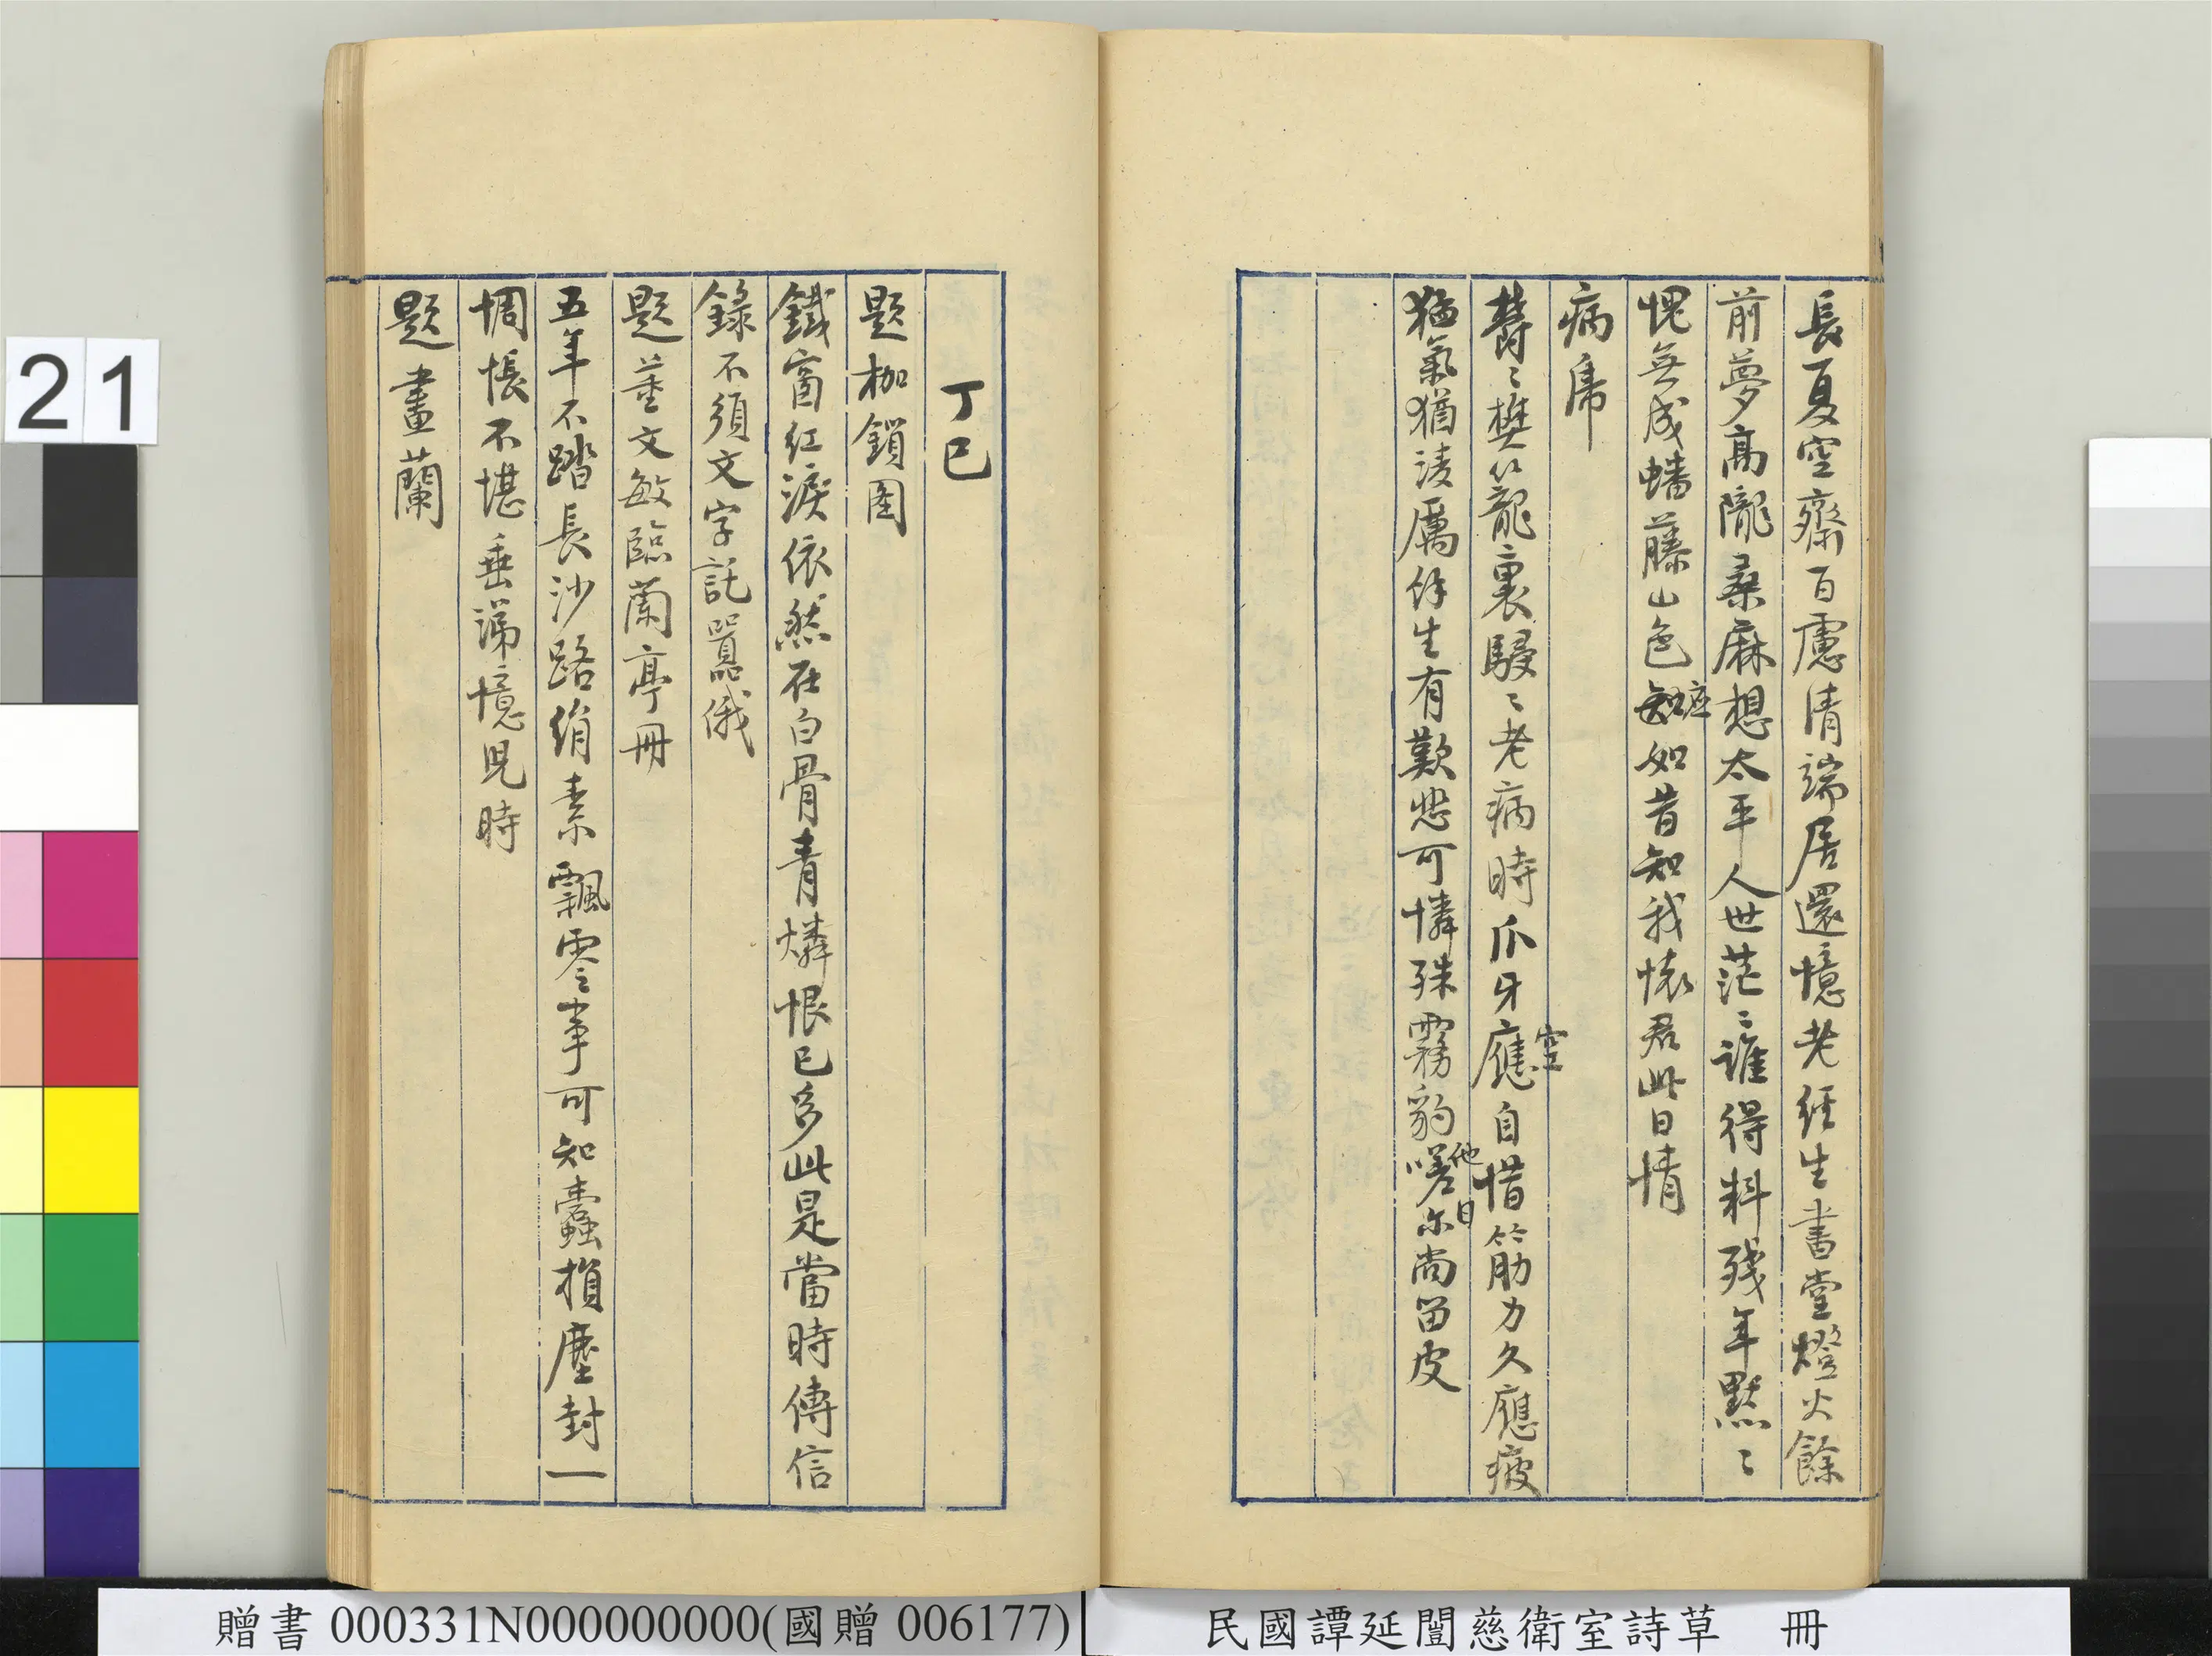 長夏空齋百慮清端居還憶老經生書堂燈火餘
前夢高隴桑麻想太平人世茫〻誰得料殘年默〻
愧無成蟠藤山色應如昔知我懷君此日情
病虎
鬱〻樊籠裏駸〻老病時爪牙應空自惜筋力久應疲
猛氣猶淩厲餘生有歎悲可憐殊霧豹嗟尔他日尚留皮
丁巳
題枷鎖图
鐵窗紅淚依然在白骨青燐恨已多此是當時傳信
錄不須文字託囂俄
題董文敏臨蘭亭冊
五年不踏長沙路絹素飄零事可知蠹損塵封一
惆悵不堪垂涕憶兒時
題畫蘭
21
贈書 000331N000000000(國贈 006177)
民國譚延闓慈衛室詩草 冊